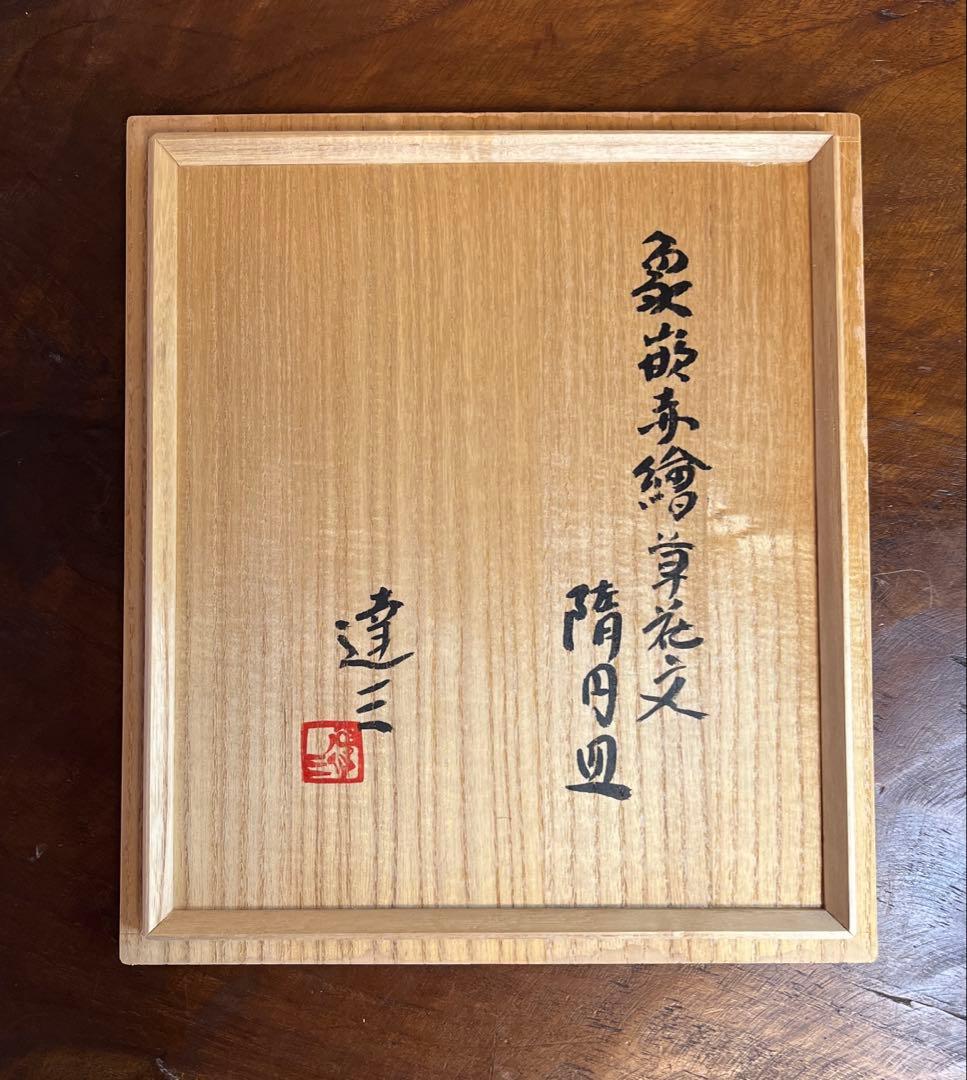 象嵌赤繪草花文
隋円皿
達三